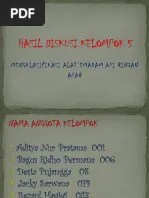 HASIL DISKUSI KELOMPOK 5
MENGKLASIFIKASI ALAT PEMADAM API RINGAN
APAR
NAMA ANGGOTA KELOMPOK
Aditya Nur Pratama 001
Bagus Ridho Permana 006
Desta Pujangga 08
Jacky Sarwana 015